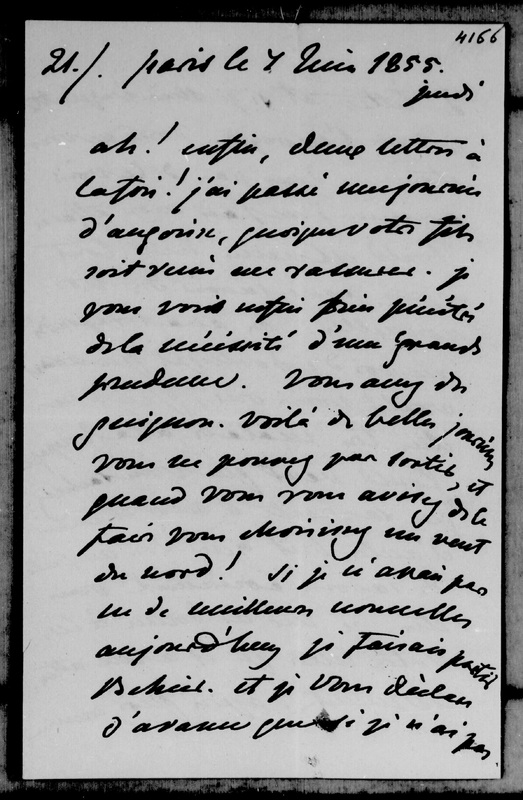 4166
21./. paris le 7 Juin 1855.
jeudi
ah! enfin, deux lettres à
la fois! j'ai passé une journée
d'angoisse, quoique votre fils
soit venu me rassurer. je
vous vois enfin bien pénétré
de la nécessité d'une grande
prudence. vous avez du
guignon. voilà de belles journées
vous ne pouvez pas sortir, et
quand vous vous avisez de le
faire vous choisissez un vent
du nord! si je n'avais pas
eu de meilleures nouvelles
aujourd'huy je faisais partir
et je vous déclare
d'avance que si je n'ai pas